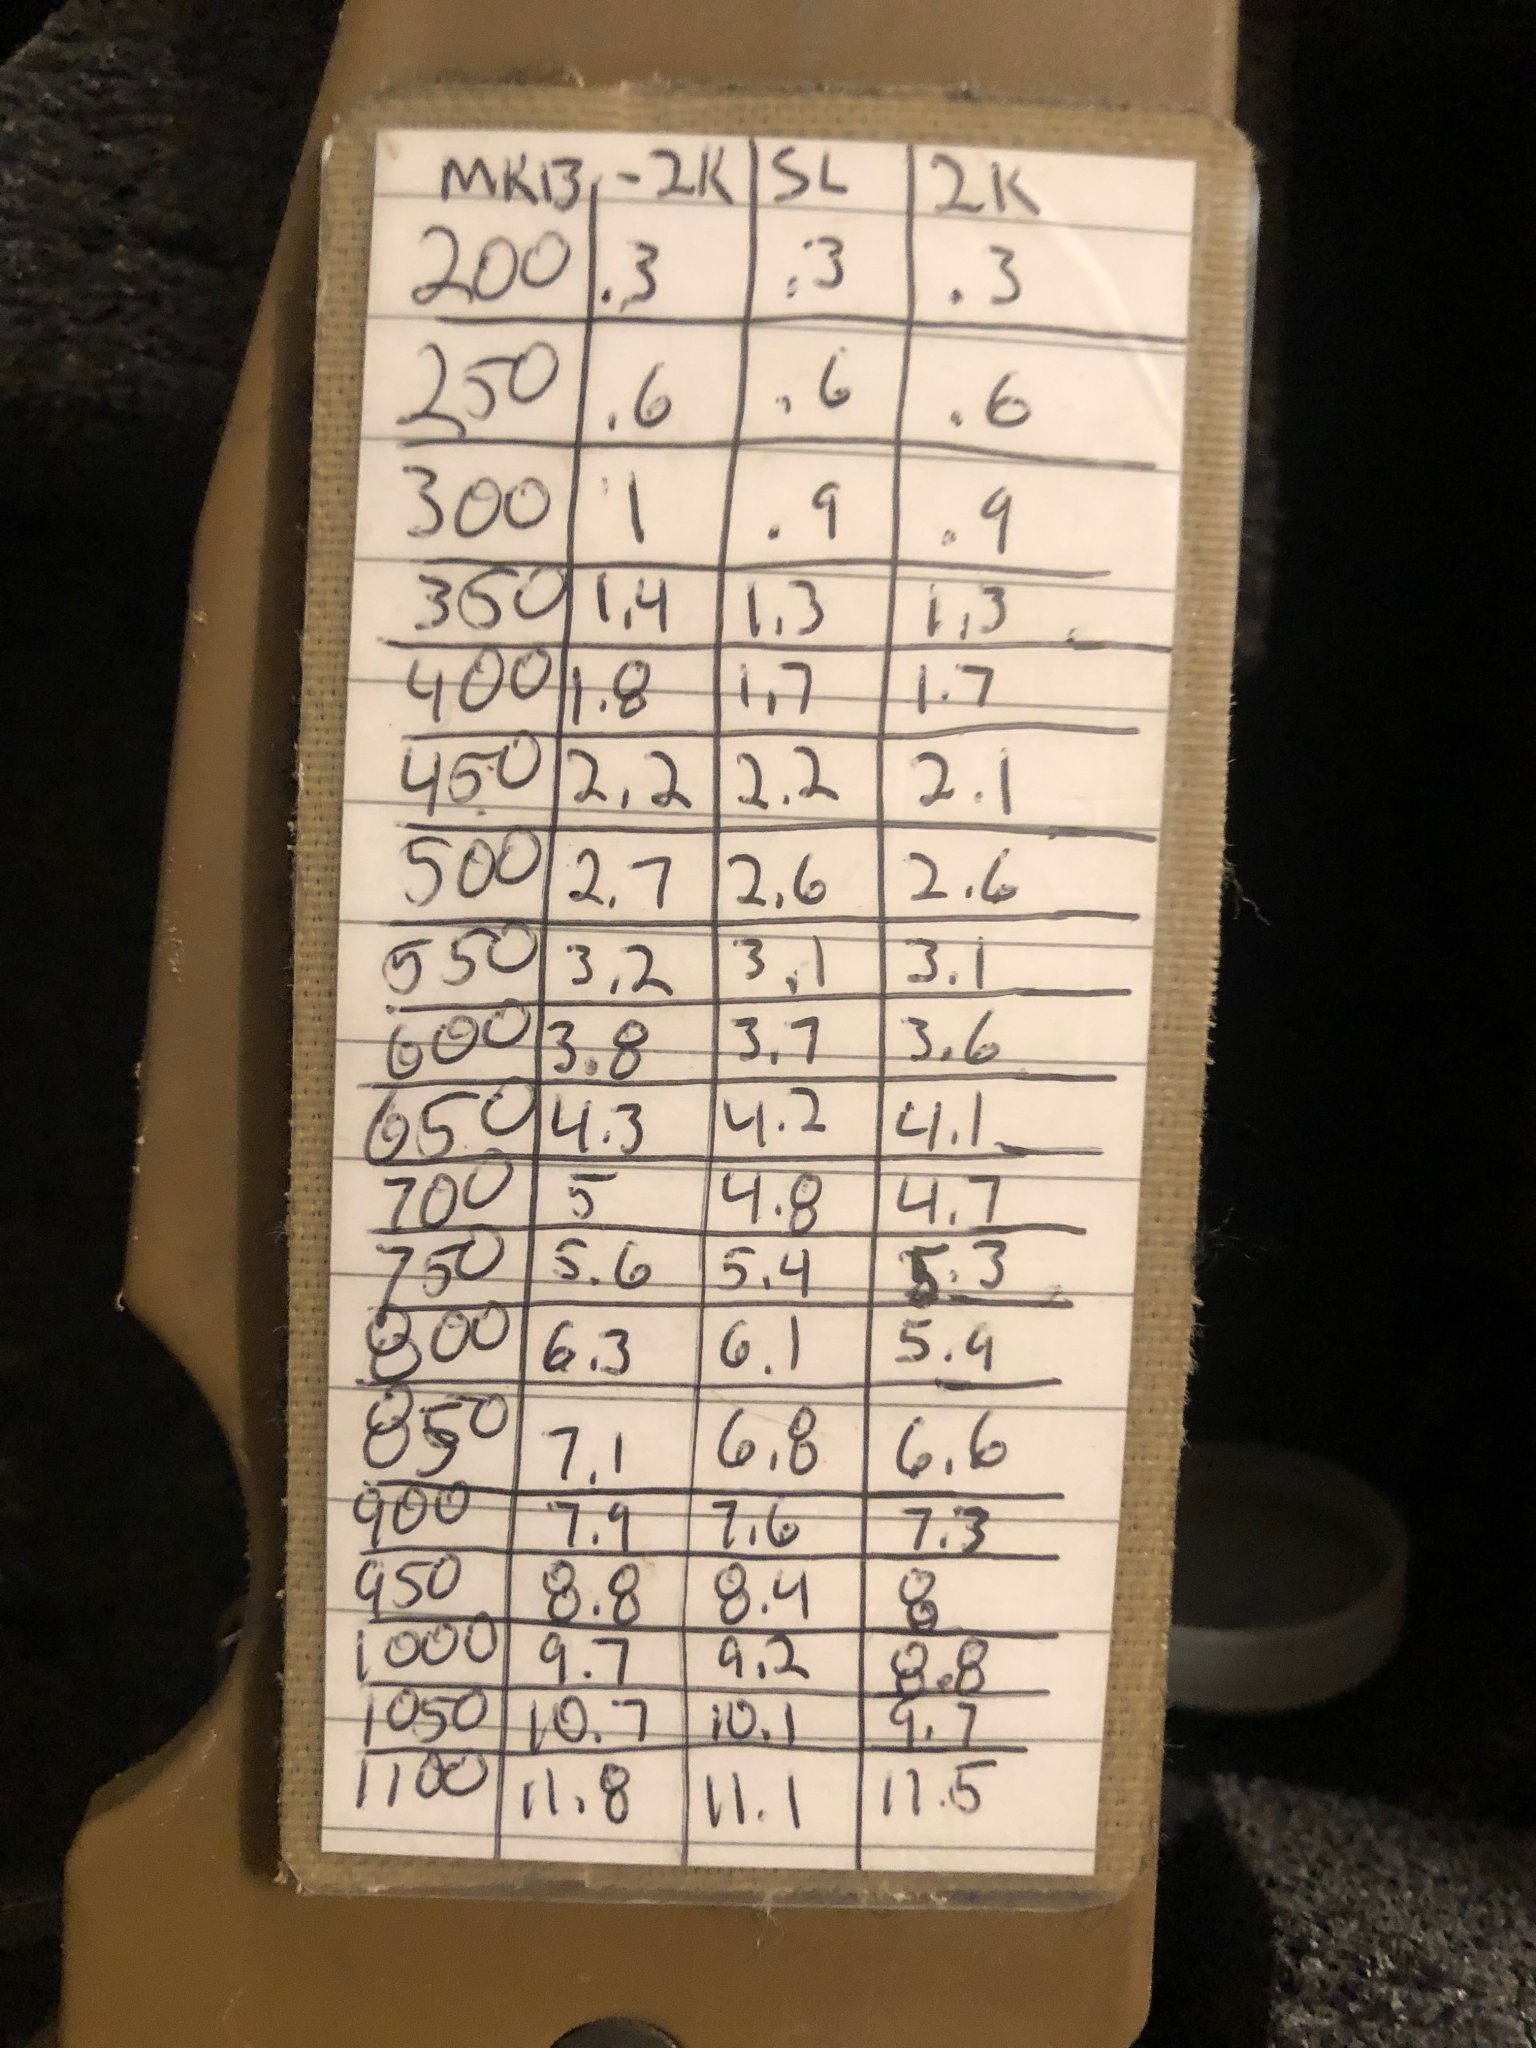 MK13 -2K SL 2K
200 .3 .3 .3
250 .6 .6 .6
300 1 .9 .9
350 1.4 1.3 1.3
400 1.8 1.7 1.7
450 2.2 2.2 2.1
500 2.7 2.6 2.6
550 3.2 3.1 3.1
600 3.8 3.7 3.6
650 4.3 4.2 4.1
700 5 4.8 4.7
750 5.6 5.4 5.3
800 6.3 6.1 5.9
850 7.1 6.8 6.6
900 7.9 7.6 7.3
950 8.8 8.4 8
1000 9.7 9.2 8.8
1050 10.7 10.1 9.7
1100 11.8 11.1 11.5